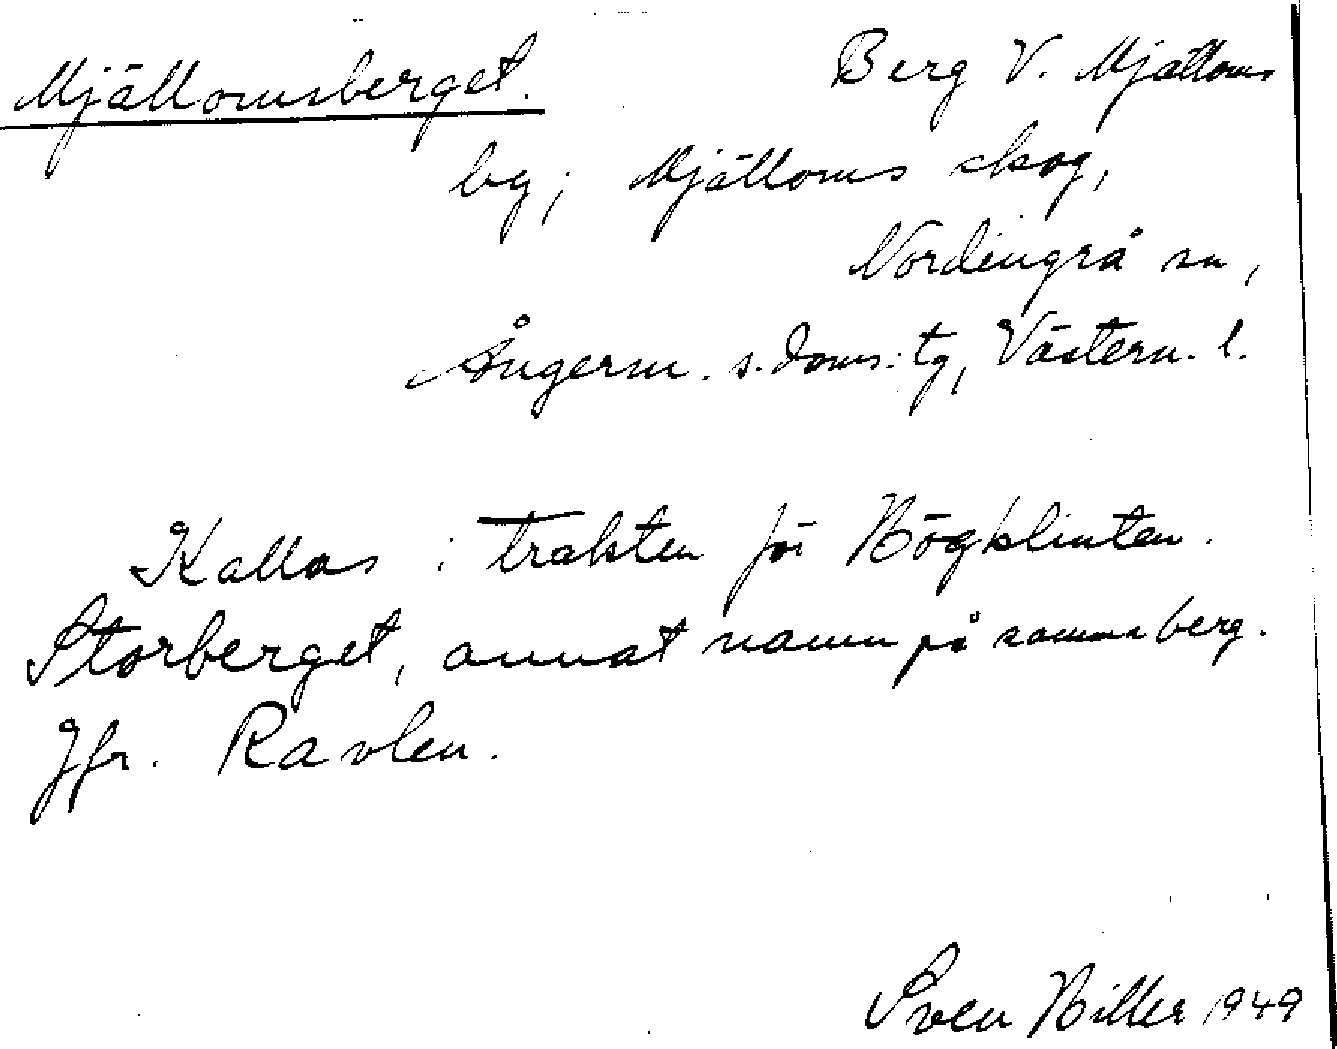 Mjällomsberget. Berg V. Mjälloms
by; Mjälloms skog,
Nordingrå sn,
Ångerm. s. doms. tg, Västern. l.
Kallas i trakten för Högklinten.
Storberget, annat namn på samma berg.
Jfr. Ravlen.
Sven Hiller 1949